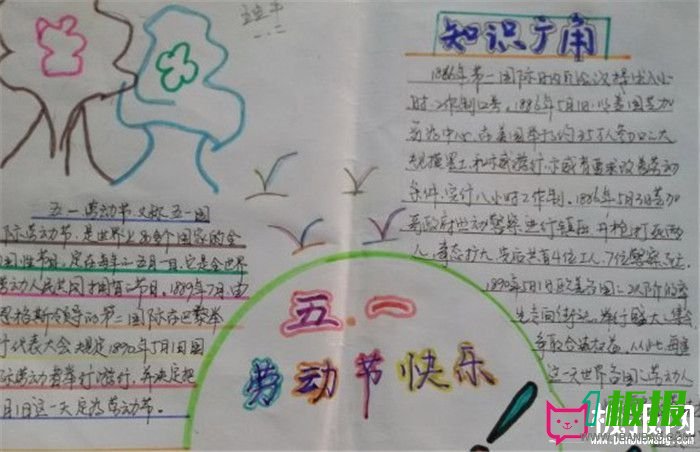 知识广角
1866年第一国际日内瓦会议提出八小
时工作制口号。1886年5月1日,以美国芝加
哥为中心,在美国举行约35万人参加的大
规模罢工和示威游行,示威者要求改善劳动
条件,实行八小时工作制。1886年5月3日芝加
哥政府出动警察进行镇压,开枪打死两
人,事态扩大,先后共有4位工人、7位警察死亡
1890年5月1日欧美各国
走向街头,举行盛大
争取合法权益。从此每逢
这一天世界各国劳动人
五一劳动节又称五一国
际劳动节,是世界上80多个国家的全
国性节日,定在每年五月一日,它是全世界
劳动人民共同拥有的节日。1889年7月,由
恩格斯领导的第二国际在巴黎举
行代表大会规定1890年5月1日国
际劳动者举行游行,并决定把
月1日这一天定为劳动节。
五.一
劳动节快乐
1板报